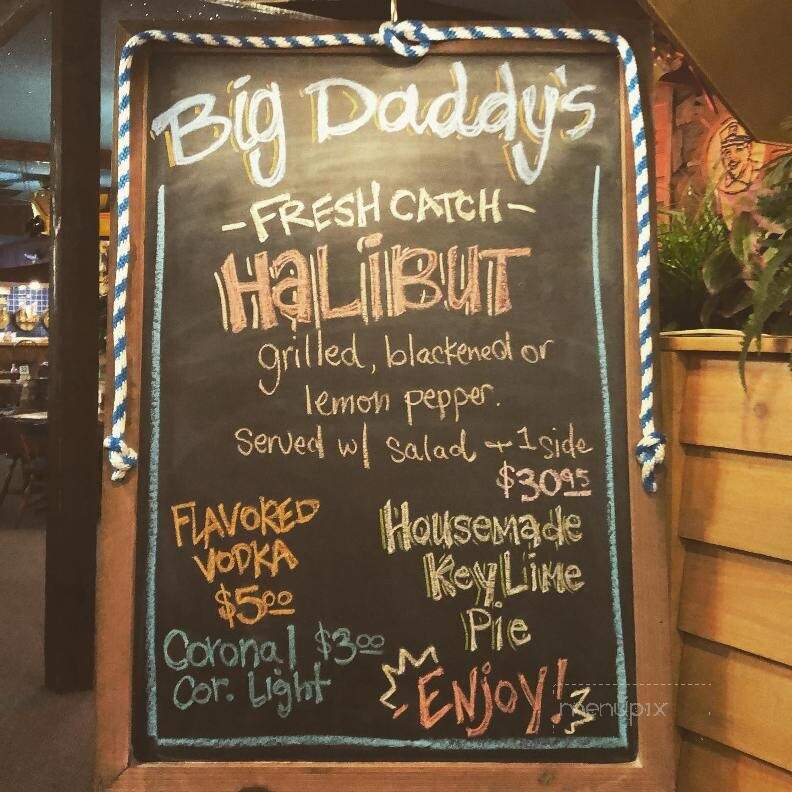 Big Daddy's
-FRESH CATCH-
HALIBUT
grilled, blackened or
lemon pepper.
served w/ salad + 1 side
$30.95
FLAVORED
VODKA
$5.00
Corona/ $3.00
Cor. Light
Housemade
Key Lime
Pie
ENJOY!
menupix